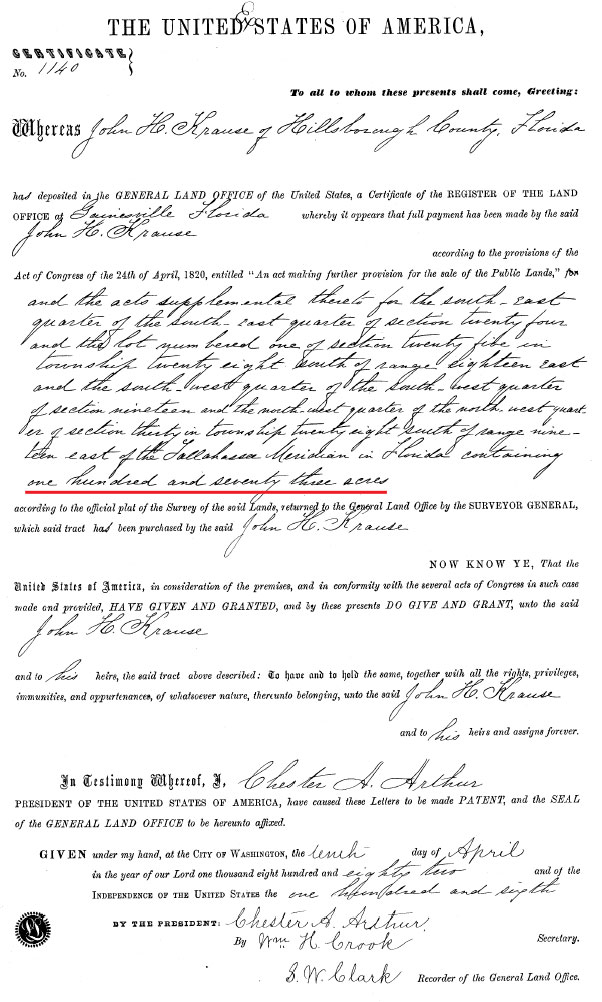 Ex
THE UNITED STATES OF AMERICA,
CERTIFICATE
No. 1140
To all to whom these presents shall come, Greeting:
Whereas John H. Krause of Hillsborough County, Florida
has deposited in the GENERAL LAND OFFICE of the United States, a Certificate of the REGISTER OF THE LAND
OFFICE at Gainesville Florida whereby it appears that full payment has been made by the said
John H. Krause
according to the provisions of the
Act of Congress of the 24th of April, 1820, entitled "An act making further provision for the sale of the Public Lands," for
and the acts supplemental thereto for the south-east
quarter of the south-east quarter of section twenty four
and the lot numbered one of section twenty five in
township twenty eight south of range eighteen east
and the south-west quarter of the south-west quarter
of section nineteen and the north-west quarter of the north-west quart
er of section thirty in township twenty eight south of range nine-
teen east of the Tallahassee Meridian in Florida containing
one hundred and seventy three acres
according to the official plat of the Survey of the said Lands, returned to the General Land Office by the SURVEYOR GENERAL,
which said tract has been purchased by the said John H. Krause
NOW KNOW YE, That the
United States of America, in consideration of the premises, and in conformity with the several acts of Congress in such case
made and provided, HAVE GIVEN AND GRANTED, and by these presents DO GIVE AND GRANT, unto the said
John H. Krause
and to his heirs, the said tract above described: To have and to hold the same, together with all the rights, privileges,
immunities, and appurtenances, of whatsoever nature, thereunto belonging, unto the said John H. Krause
and to his heirs and assigns forever.
In Testimony Whereof, I, Chester A. Arthur
PRESIDENT OF THE UNITED STATES OF AMERICA, have caused these Letters to be made PATENT, and the SEAL
of the GENERAL LAND OFFICE to be hereunto affixed.
GIVEN under my hand, at the CITY OF WASHINGTON, the tenth day of April
in the year of our Lord one thousand eight hundred and eighty two and of the
INDEPENDENCE OF THE UNITED STATES the one hundred and sixth
BY THE PRESIDENT: Chester A. Arthur
By Wm H. Crook Secretary.
S. W. Clark Recorder of the General Land Office.